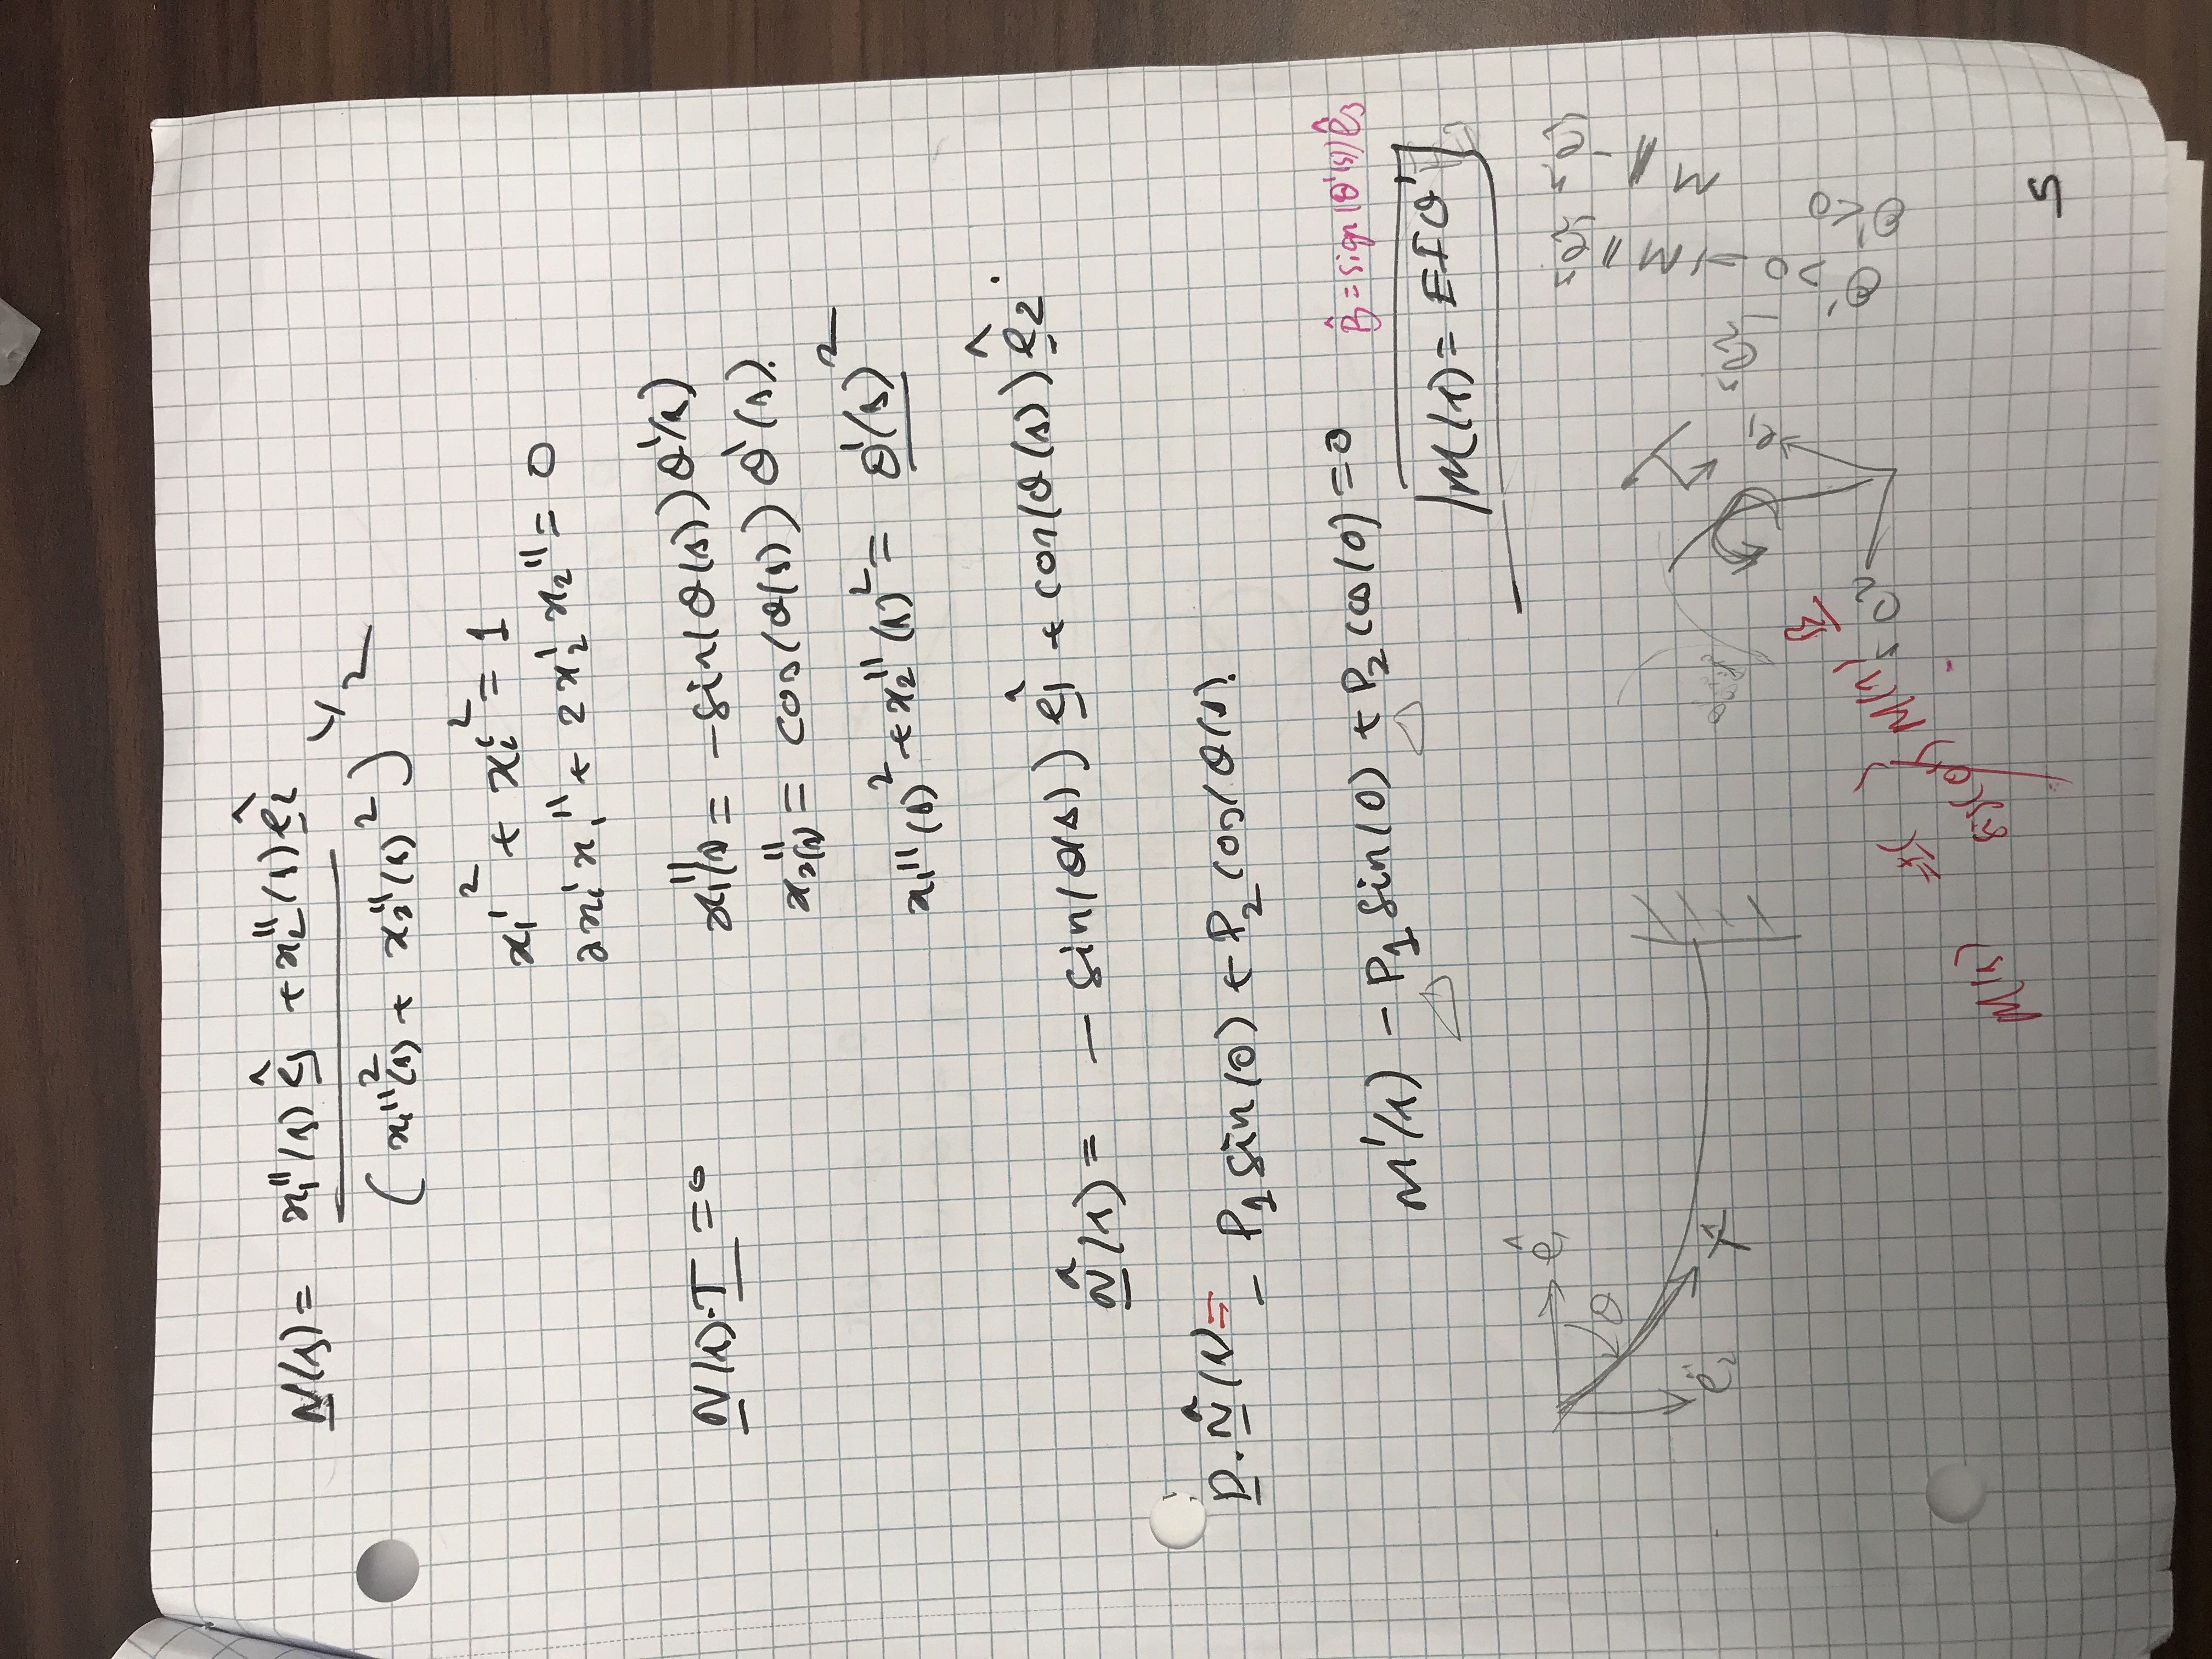 N(s) = x₁''(s) ê₁ + x₂''(s) ê₂
(x₁''²(s) + x₂''(s)²)^1/2
x₁'² + x₂'² = 1
2x₁'x₁'' + 2x₂'x₂'' = 0
N(s)·T = 0
x₁''(s) = -sin(θ(s)) θ'(s)
x₂''(s) = cos(θ(s)) θ'(s).
x₁''(s)² + x₂''(s)² = θ'(s)²
N̂(s) = - sin(θ(s)) ê₁ + cos(θ(s)) ê₂.
P · N̂(s) = - P₁ sin(θ) + P₂ cos(θ(s).
M'(s) - P₁ sin(θ) + P₂ cos(θ) = 0
B̂ = sign(θ'(s)) ê₃
M(s) = EIθ'
ê₁
θ
ê₂
T̂
e₁
ê₂
e₂
θ' > 0 → M ∥ ê₃
θ' < 0 M ∥ -ê₃
M(s) = ±( )
M(s) B
5